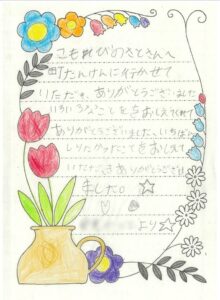 こもれびのさとさんへ
町たんけんに行かせて
いただき、ありがとうございました
いろいろなことをおしえてくれて
ありがとうございました。いちばん
しりたかったことをおしえて
いただきありがとうござい
ました。☆
より☆